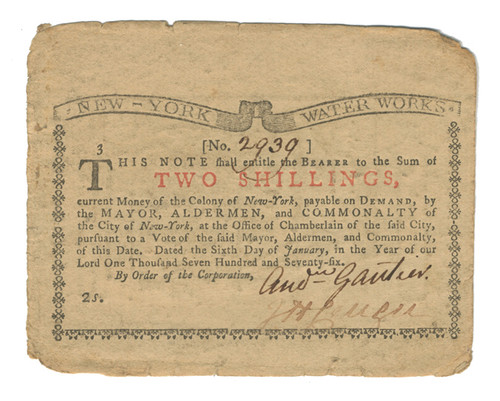 NEW-YORK WATER WORKS.
3
[No. 2939]
THIS NOTE shall entitle the BEARER to the Sum of
TWO SHILLINGS,
current Money of the Colony of New-York, payable on DEMAND, by
the MAYOR, ALDERMEN, and COMMONALTY of
the City of New-York, at the Office of Chamberlain of the said City,
pursuant to a Vote of the said Mayor, Aldermen, and Commonalty,
of this Date. Dated the Sixth Day of January, in the Year of our
Lord One Thousand Seven Hundred and Seventy-six.
By Order of the Corporation,
And:w Gautier.
2s.